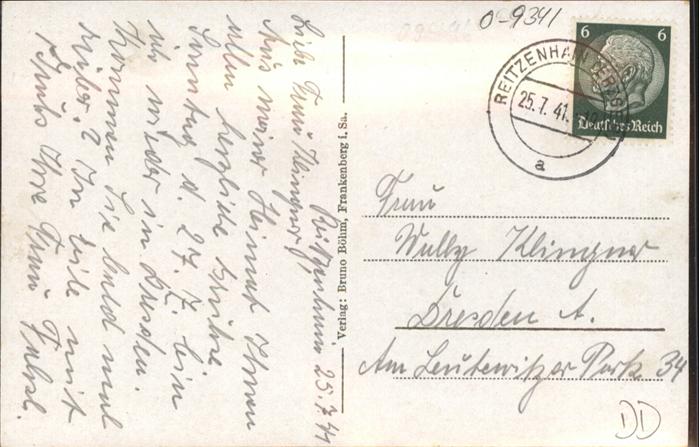 0-9341
6 6
Deutsches Reich
REITZENHAIN (ERZGEB)
25.7.41.
a
Reitzenhain 25.7.41
Liebe Frau Klingner!
Aus meiner Heimat Ihnen
allen herzliche Grüße.
Sonntag d. 27.7. bin
ich wieder in Dresden.
Kommen Sie bald mal
rüber? In Eile mit
Gruß Ihre Frau
Verlag: Bruno Böhm, Frankenberg i. Sa.
Frau
Wally Klingner
Dresden A.
Am Leutewitzer Park 34
DD